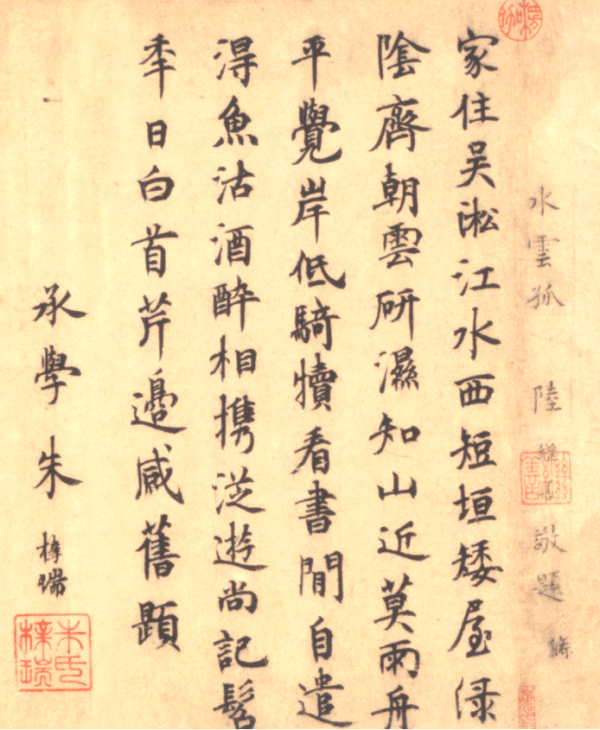 水雲孤 陸繼善敬題
家住吴淞江水西短垣矮屋渌
陰齊朝雲研濕知山近莫雨舟
平覺岸低騎犢看書閒自遣
淂魚沽酒醉相携從遊尚記髫
秊日白首芹邉感舊題
承學朱梓瑞
朱氏梓瑞